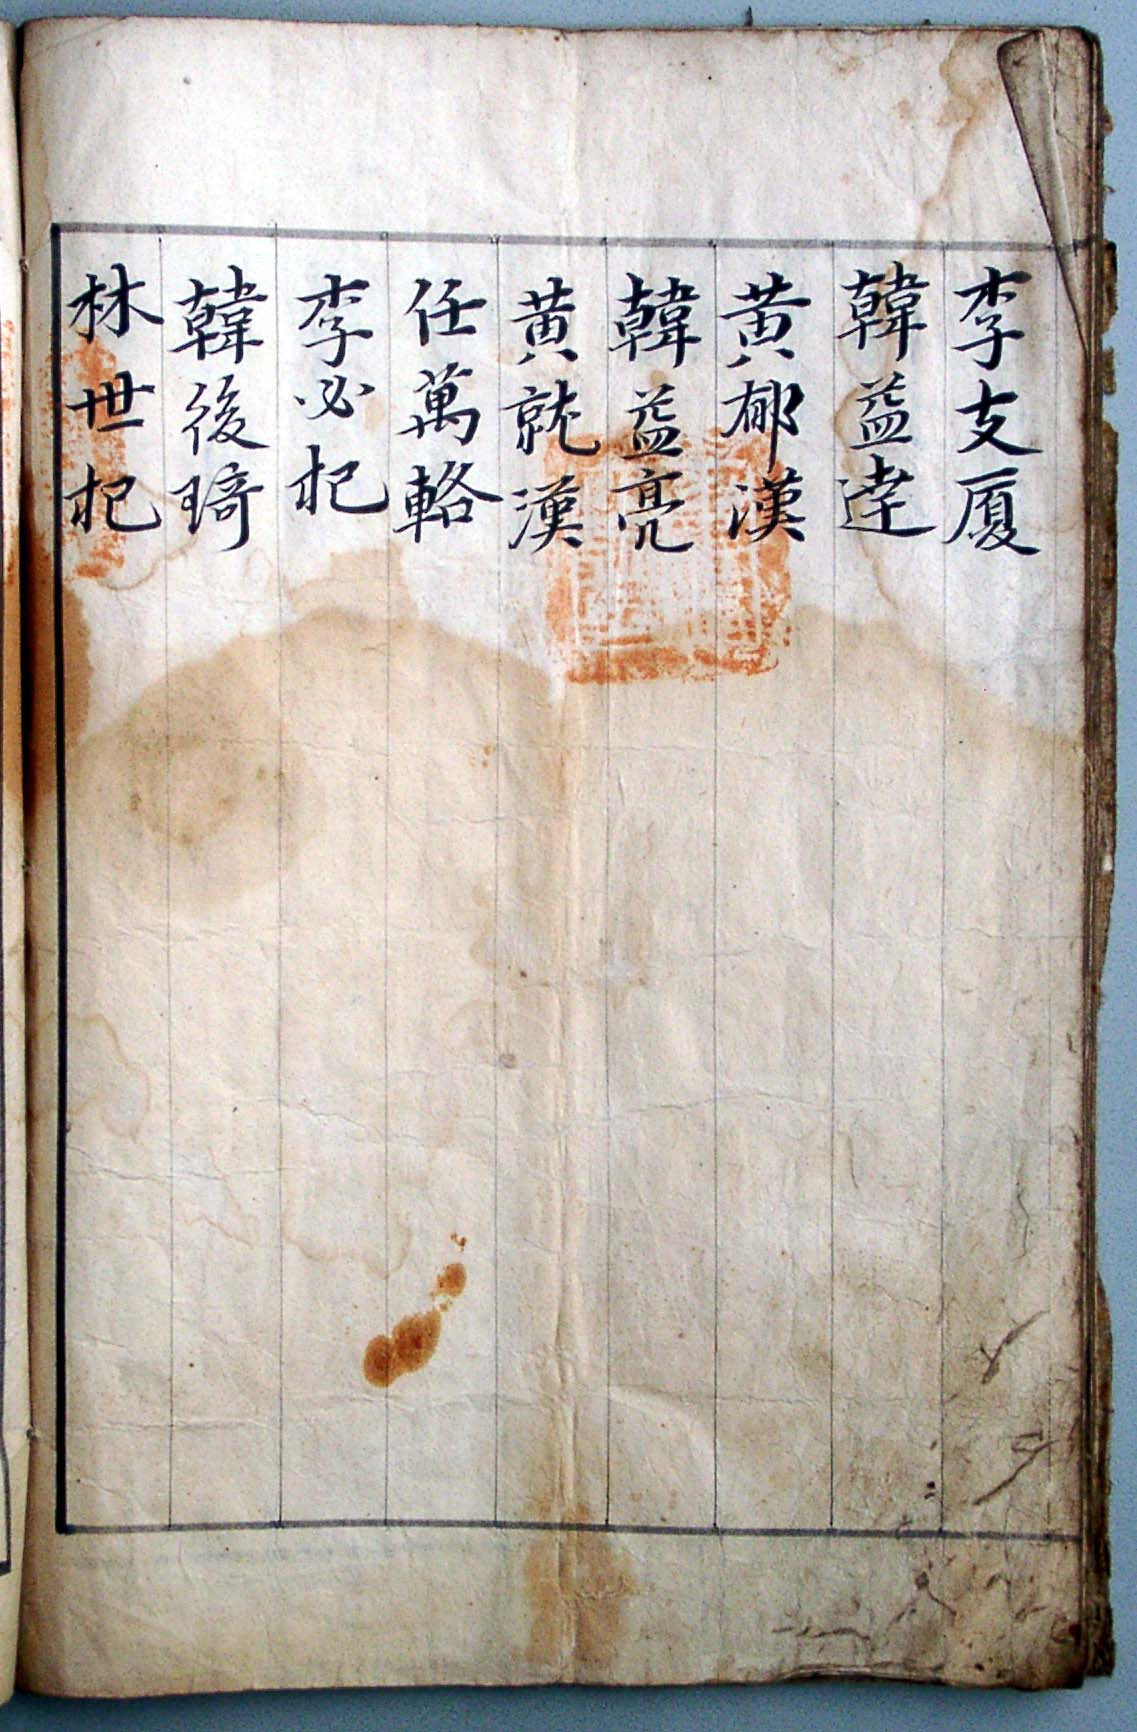 李支厦
韓益達
黃郁漢
韓益亮
黃就漢
任萬輅
李必杞
韓後琦
林世杞